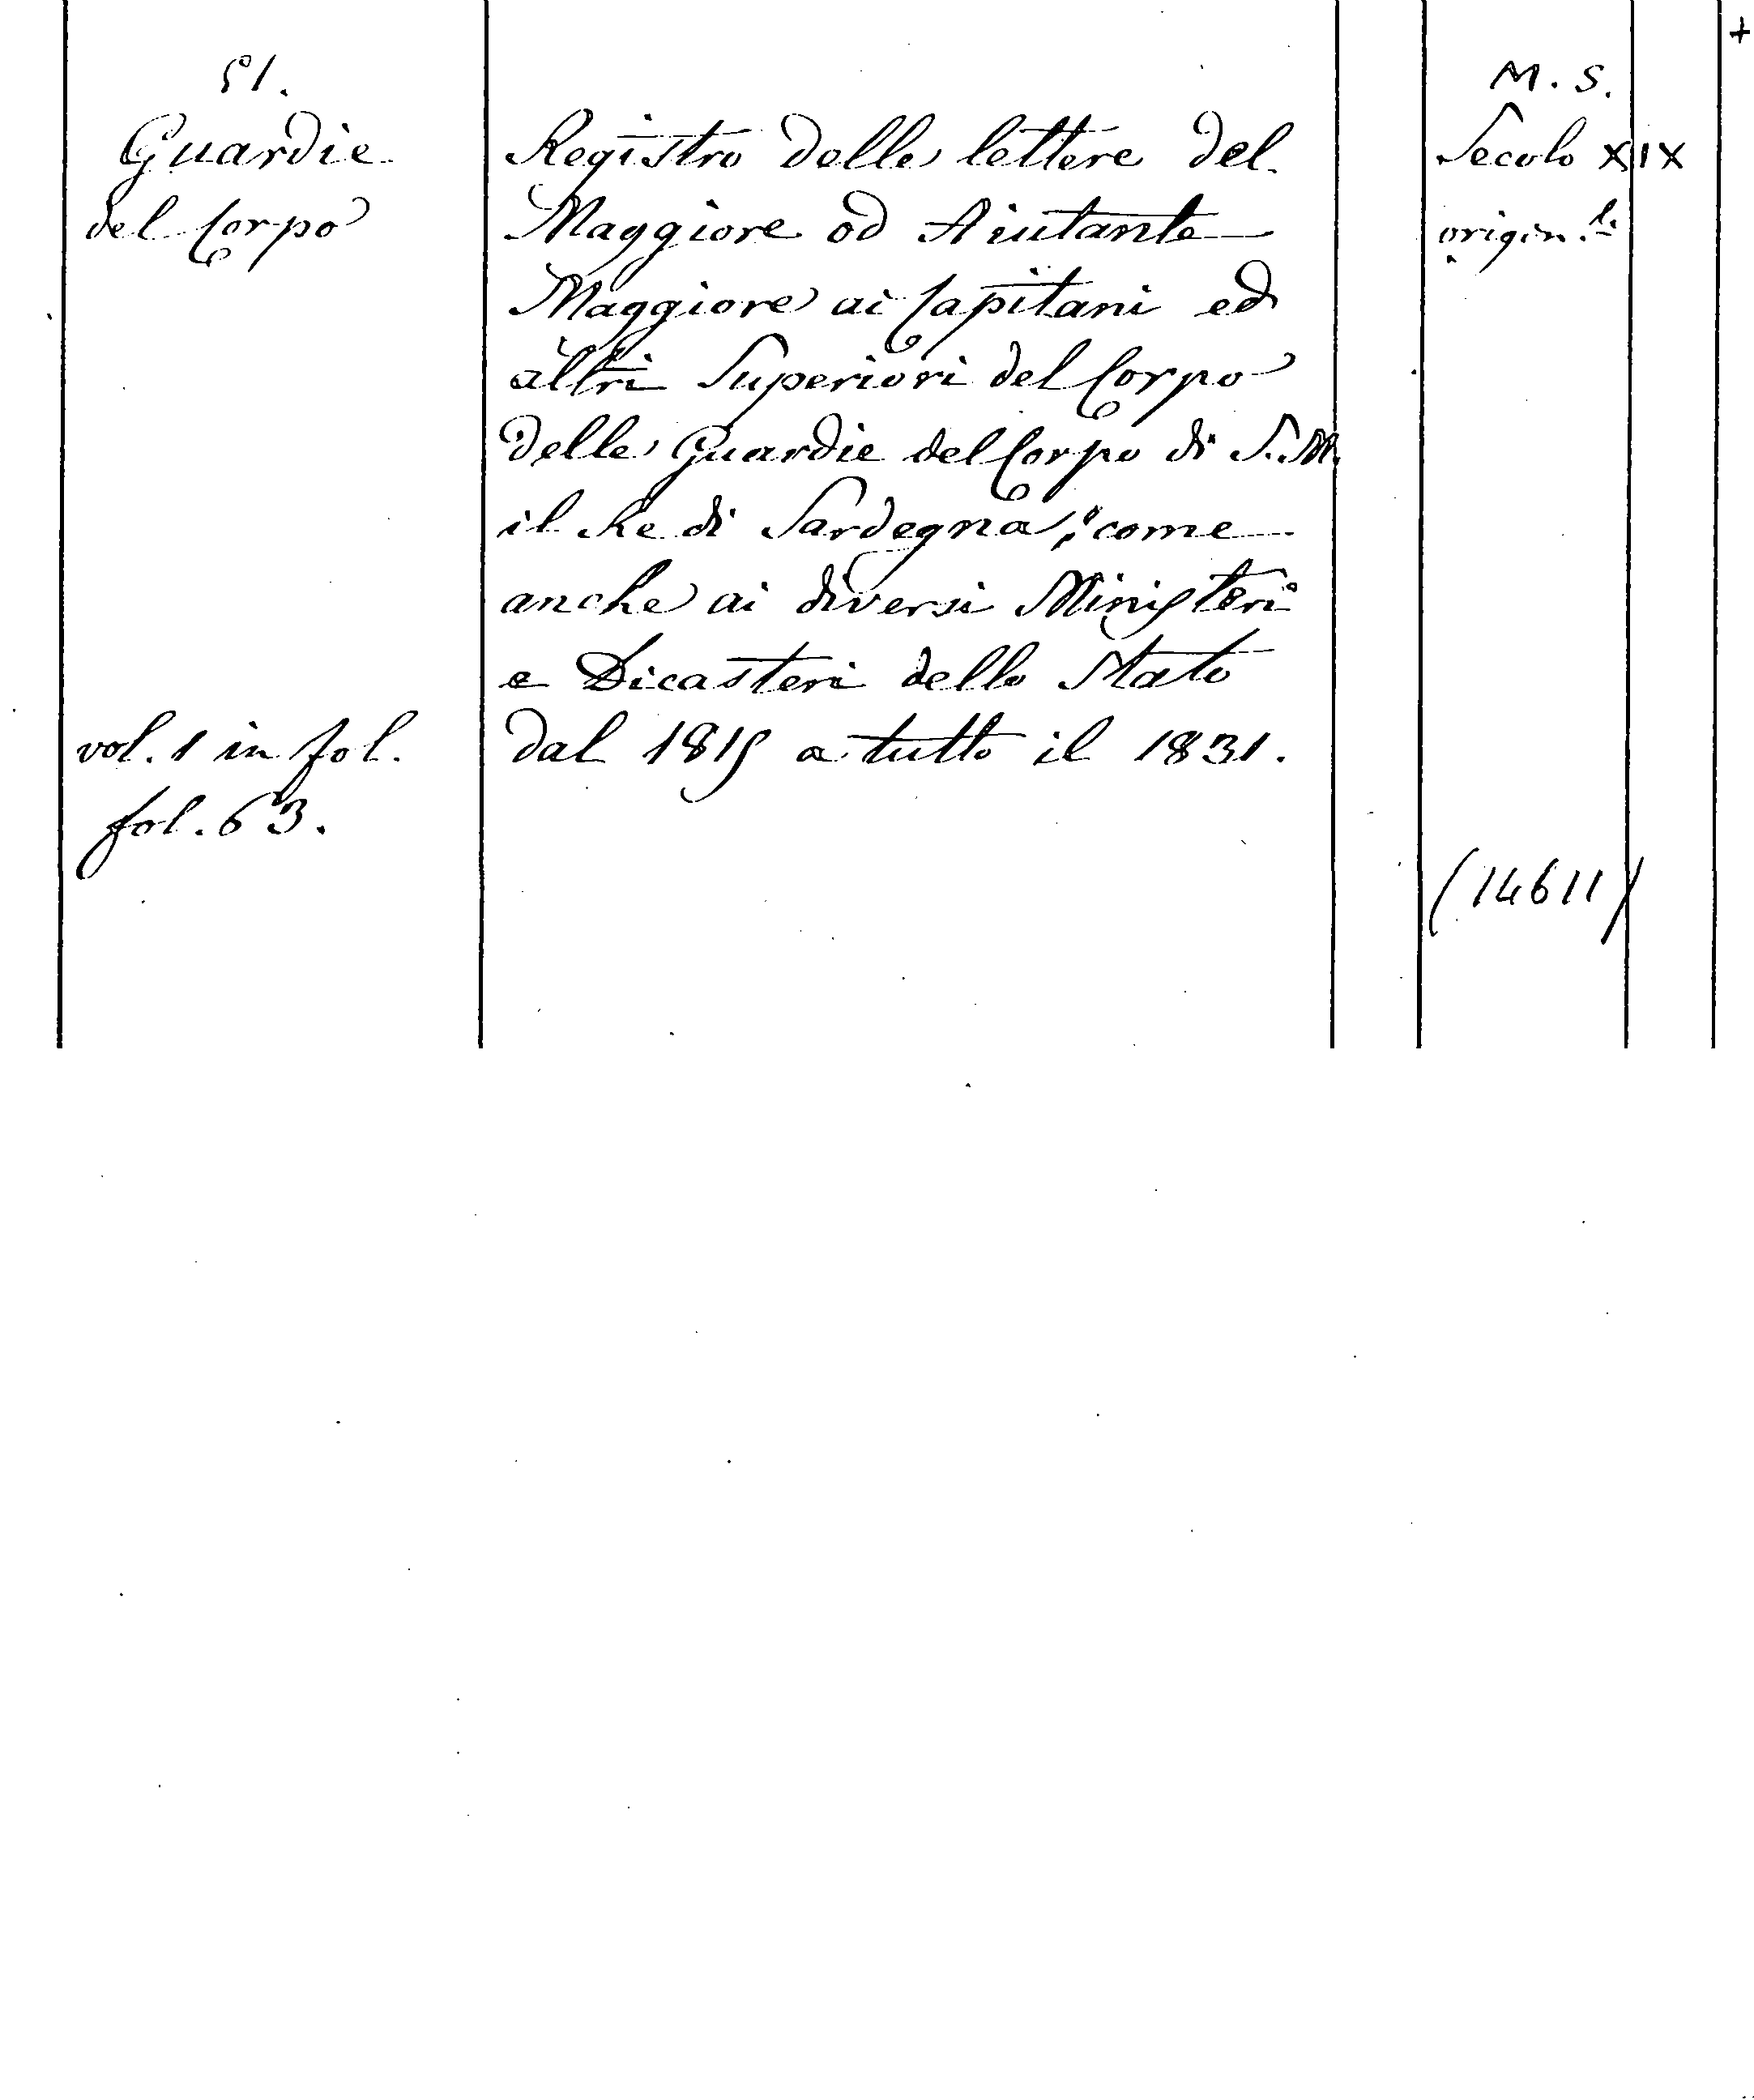 +
51.
Guardie
del Corpo
Registro delle lettere del
Maggiore od Aiutante
Maggiore ai Capitani ed
altri Superiori del Corpo
delle Guardie del Corpo di S. M.
il Re di Sardegna, come
anche ai diversi Ministeri
e Dicasteri dello Stato
dal 1815 a tutto il 1831.
vol. 1 in fol.
fol. 63.
M. S.
Secolo XIX
origin.li
(14611)